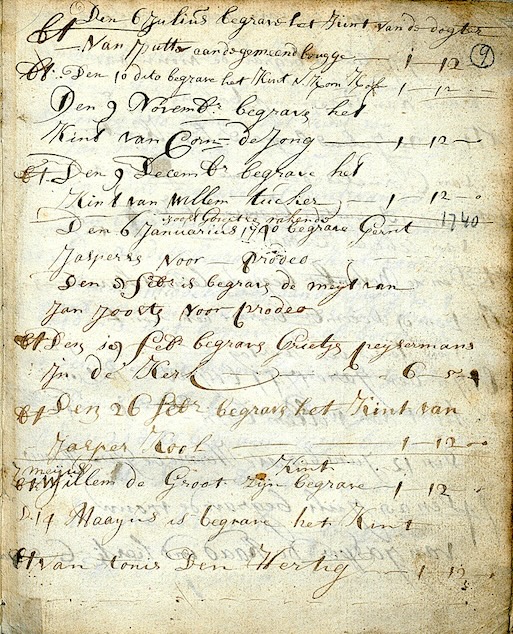 bt Den 6 Julius begrave het Kint van de dogter
Van Putte aande gemeend brugge — 1 12 (9)
bt. Den 10 dito begrave het Kint v. Koff — 1 12 —
Den 9 Novembr begrave het
Kint van Corn de Jong — 1 — 12 —
bt. Den 9 Decembr begrave het
Kint van Willem tucker — 1 — 12 — 0
1740
Den 6 Januarius 1740 begrave Gerrit
Jaspers voor — Prodeo
Den 3 Febr is begrave de meyt van
Jan Jooste voor Prodeo
bt Den 10 Febr begrave Grietje peysermans
in de Kerk — 6
bt Den 26 Febr begrave het Kint van
Jasper Kool — 1 — 12 — 0
7 meyus Kint
bt. Willem de Groot zijn begrave — 1 12
D. 14 Maayus is begrave het Kint
bt. van Tonis Den Hertig — 1 12